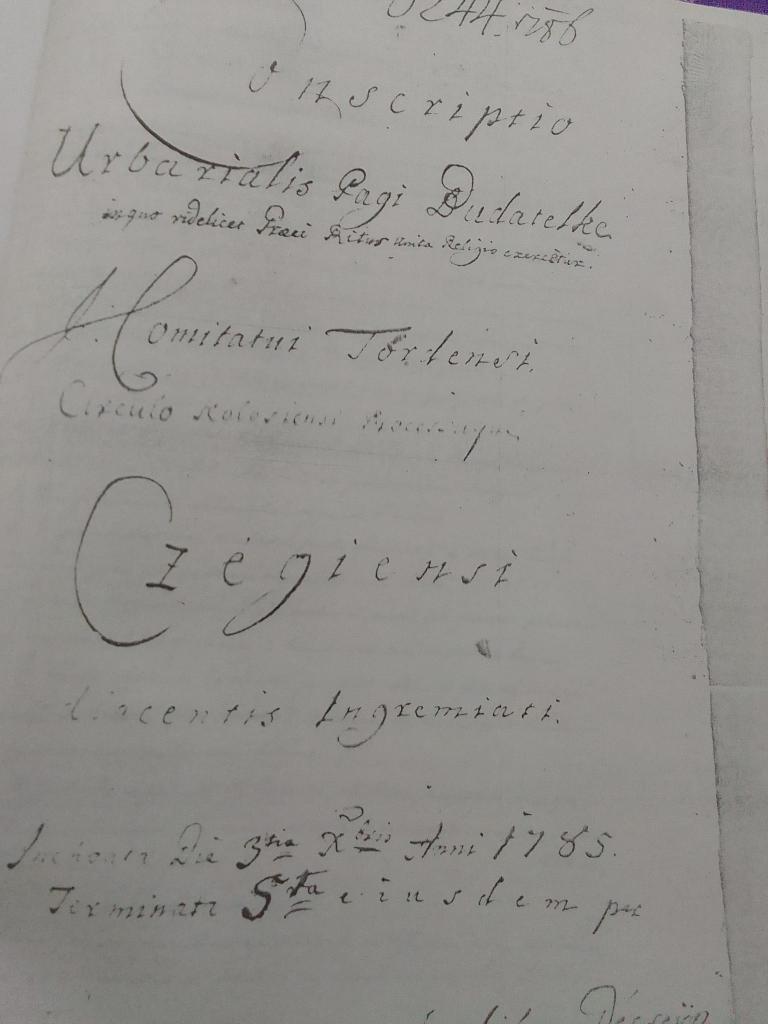 Conscriptio
Urbarialis Pagi Budatelke
in quo videlicet Graeci Ritus unita Religio exercetur.
I. Comitatui Tordensi.
Circulo Kolosiensi Processuque
Czégiensi
diacentis Ingremiati.
Inchoata Die 3tia Xbris Anni 1785.
Terminata 5ta eiusdem per